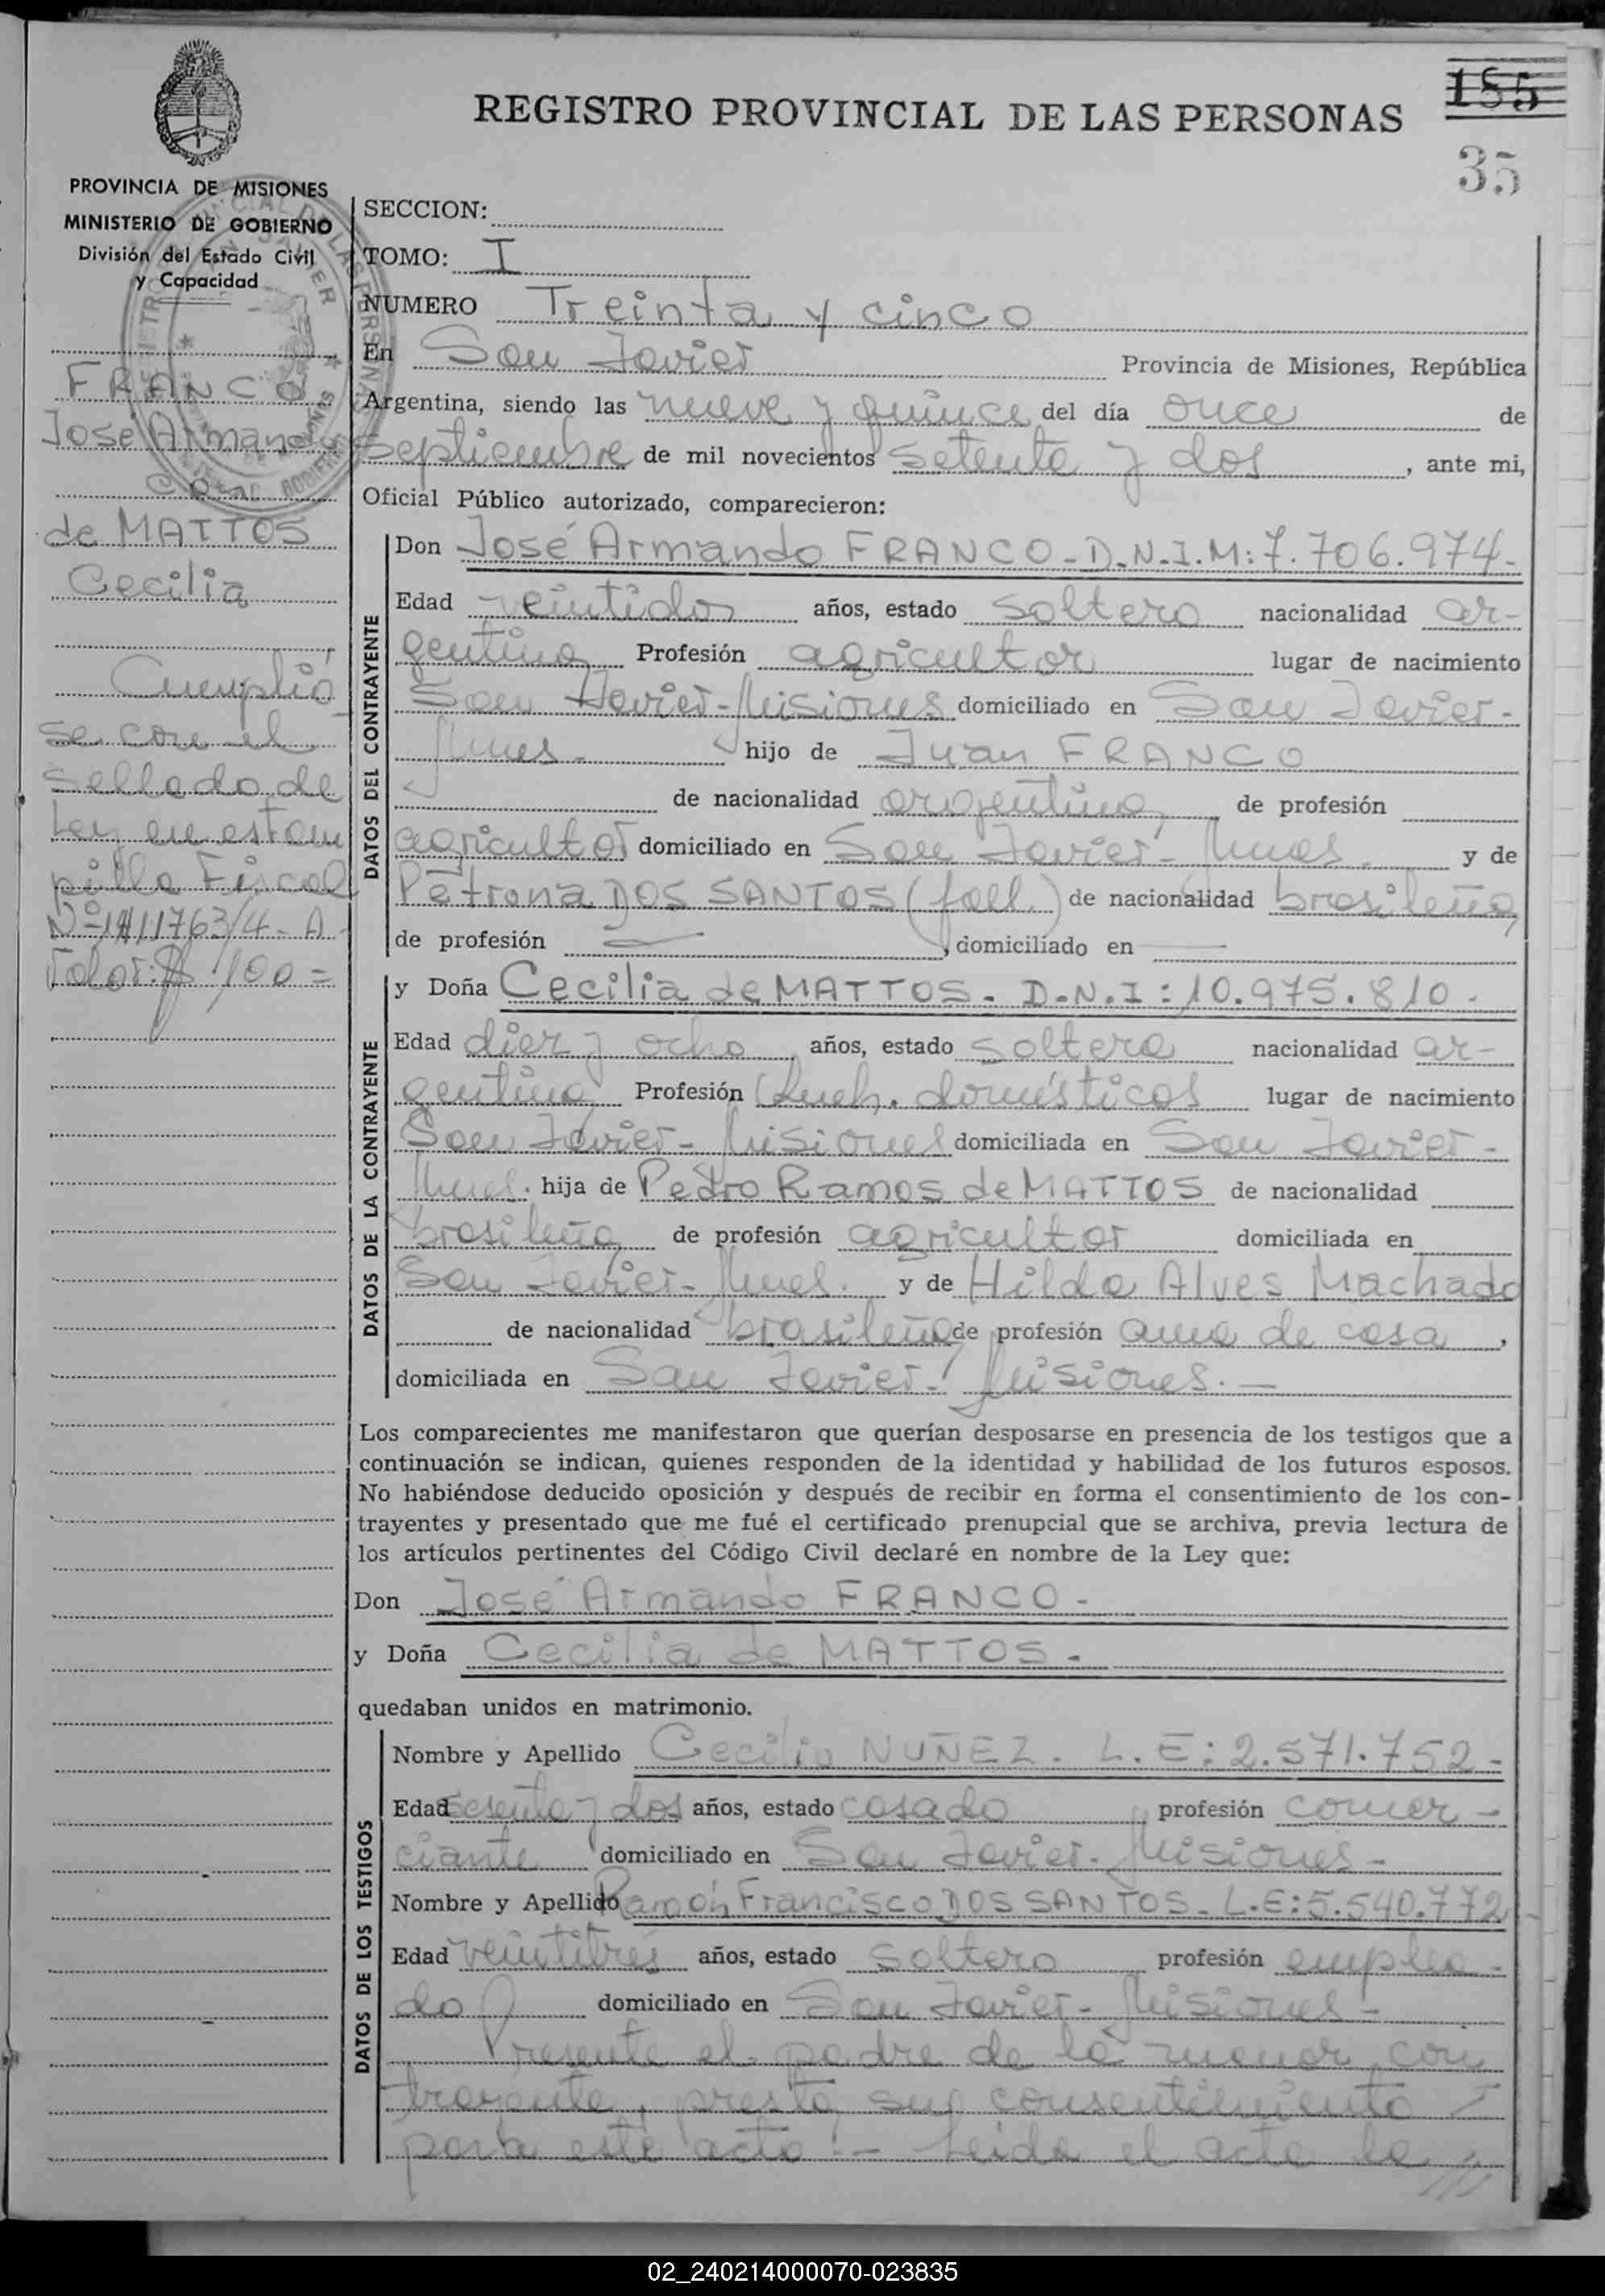 REGISTRO PROVINCIAL DE LAS PERSONAS
155
35
PROVINCIA DE MISIONES
MINISTERIO DE GOBIERNO
División del Estado Civil
y Capacidad
FRANCO
José Armando
con
de MATTOS
Cecilia
Cumplió
se con el
sellado de
Ley en estam
pilla Fiscal
A
Valor: $ 100=
SECCION:
TOMO: I
NUMERO Treinta y cinco
En San Javier Provincia de Misiones, República
Argentina, siendo las nueve y quince del día once de
septiembre de mil novecientos setenta y dos, ante mi,
Oficial Público autorizado, comparecieron:
DATOS DEL CONTRAYENTE
Don José Armando FRANCO-D.N.I.M:7.706.974-
Edad veintidos años, estado soltero nacionalidad ar-
gentina Profesión agricultor lugar de nacimiento
San Javier-Misiones domiciliado en San Javier-
Mnes. hijo de Juan FRANCO
de nacionalidad argentina de profesión
agricultor domiciliado en San Javier-Mnes. y de
Petrona DOS SANTOS (fall.) de nacionalidad brasileña
de profesión — , domiciliado en —
DATOS DE LA CONTRAYENTE
y Doña Cecilia de MATTOS- D.N.I:10.975.810-
Edad diez y ocho años, estado soltera nacionalidad ar-
gentina Profesión Queh. domésticos lugar de nacimiento
San Javier-Misiones domiciliada en San Javier-
Mnes. hija de Pedro Ramos de MATTOS de nacionalidad
brasileña de profesión agricultor domiciliada en
San Javier-Mnes. y de Hilda Alves Machado
de nacionalidad brasileña de profesión ama de casa ,
domiciliada en San Javier-Misiones.—
Los comparecientes me manifestaron que querían desposarse en presencia de los testigos que a
continuación se indican, quienes responden de la identidad y habilidad de los futuros esposos.
No habiéndose deducido oposición y después de recibir en forma el consentimiento de los con-
trayentes y presentado que me fué el certificado prenupcial que se archiva, previa lectura de
los artículos pertinentes del Código Civil declaré en nombre de la Ley que:
Don José Armando FRANCO-
y Doña Cecilia de MATTOS-
quedaban unidos en matrimonio.
DATOS DE LOS TESTIGOS
Nombre y Apellido Cecilio NUÑEZ. L.E:2.571.752-
Edad sesenta y dos años, estado casado profesión comer-
ciante domiciliado en San Javier-Misiones-
Nombre y Apellido Ramón Francisco DOS SANTOS-L.E:5.540.772
Edad veintitres años, estado soltero profesión emplea-
do domiciliado en San Javier-Misiones-
Presente el padre de la menor con
trayente, presta su consentimiento
para este acto.- Leida el acta la
///
02_240214000070-023835